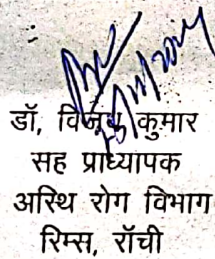 डॉ, कुमार
सह प्राध्यापक
अस्थि रोग विभाग
रिम्स, रॉची